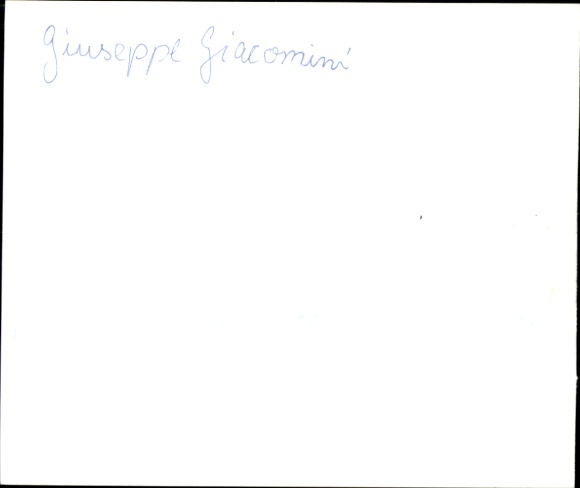 Giuseppe Giacomini